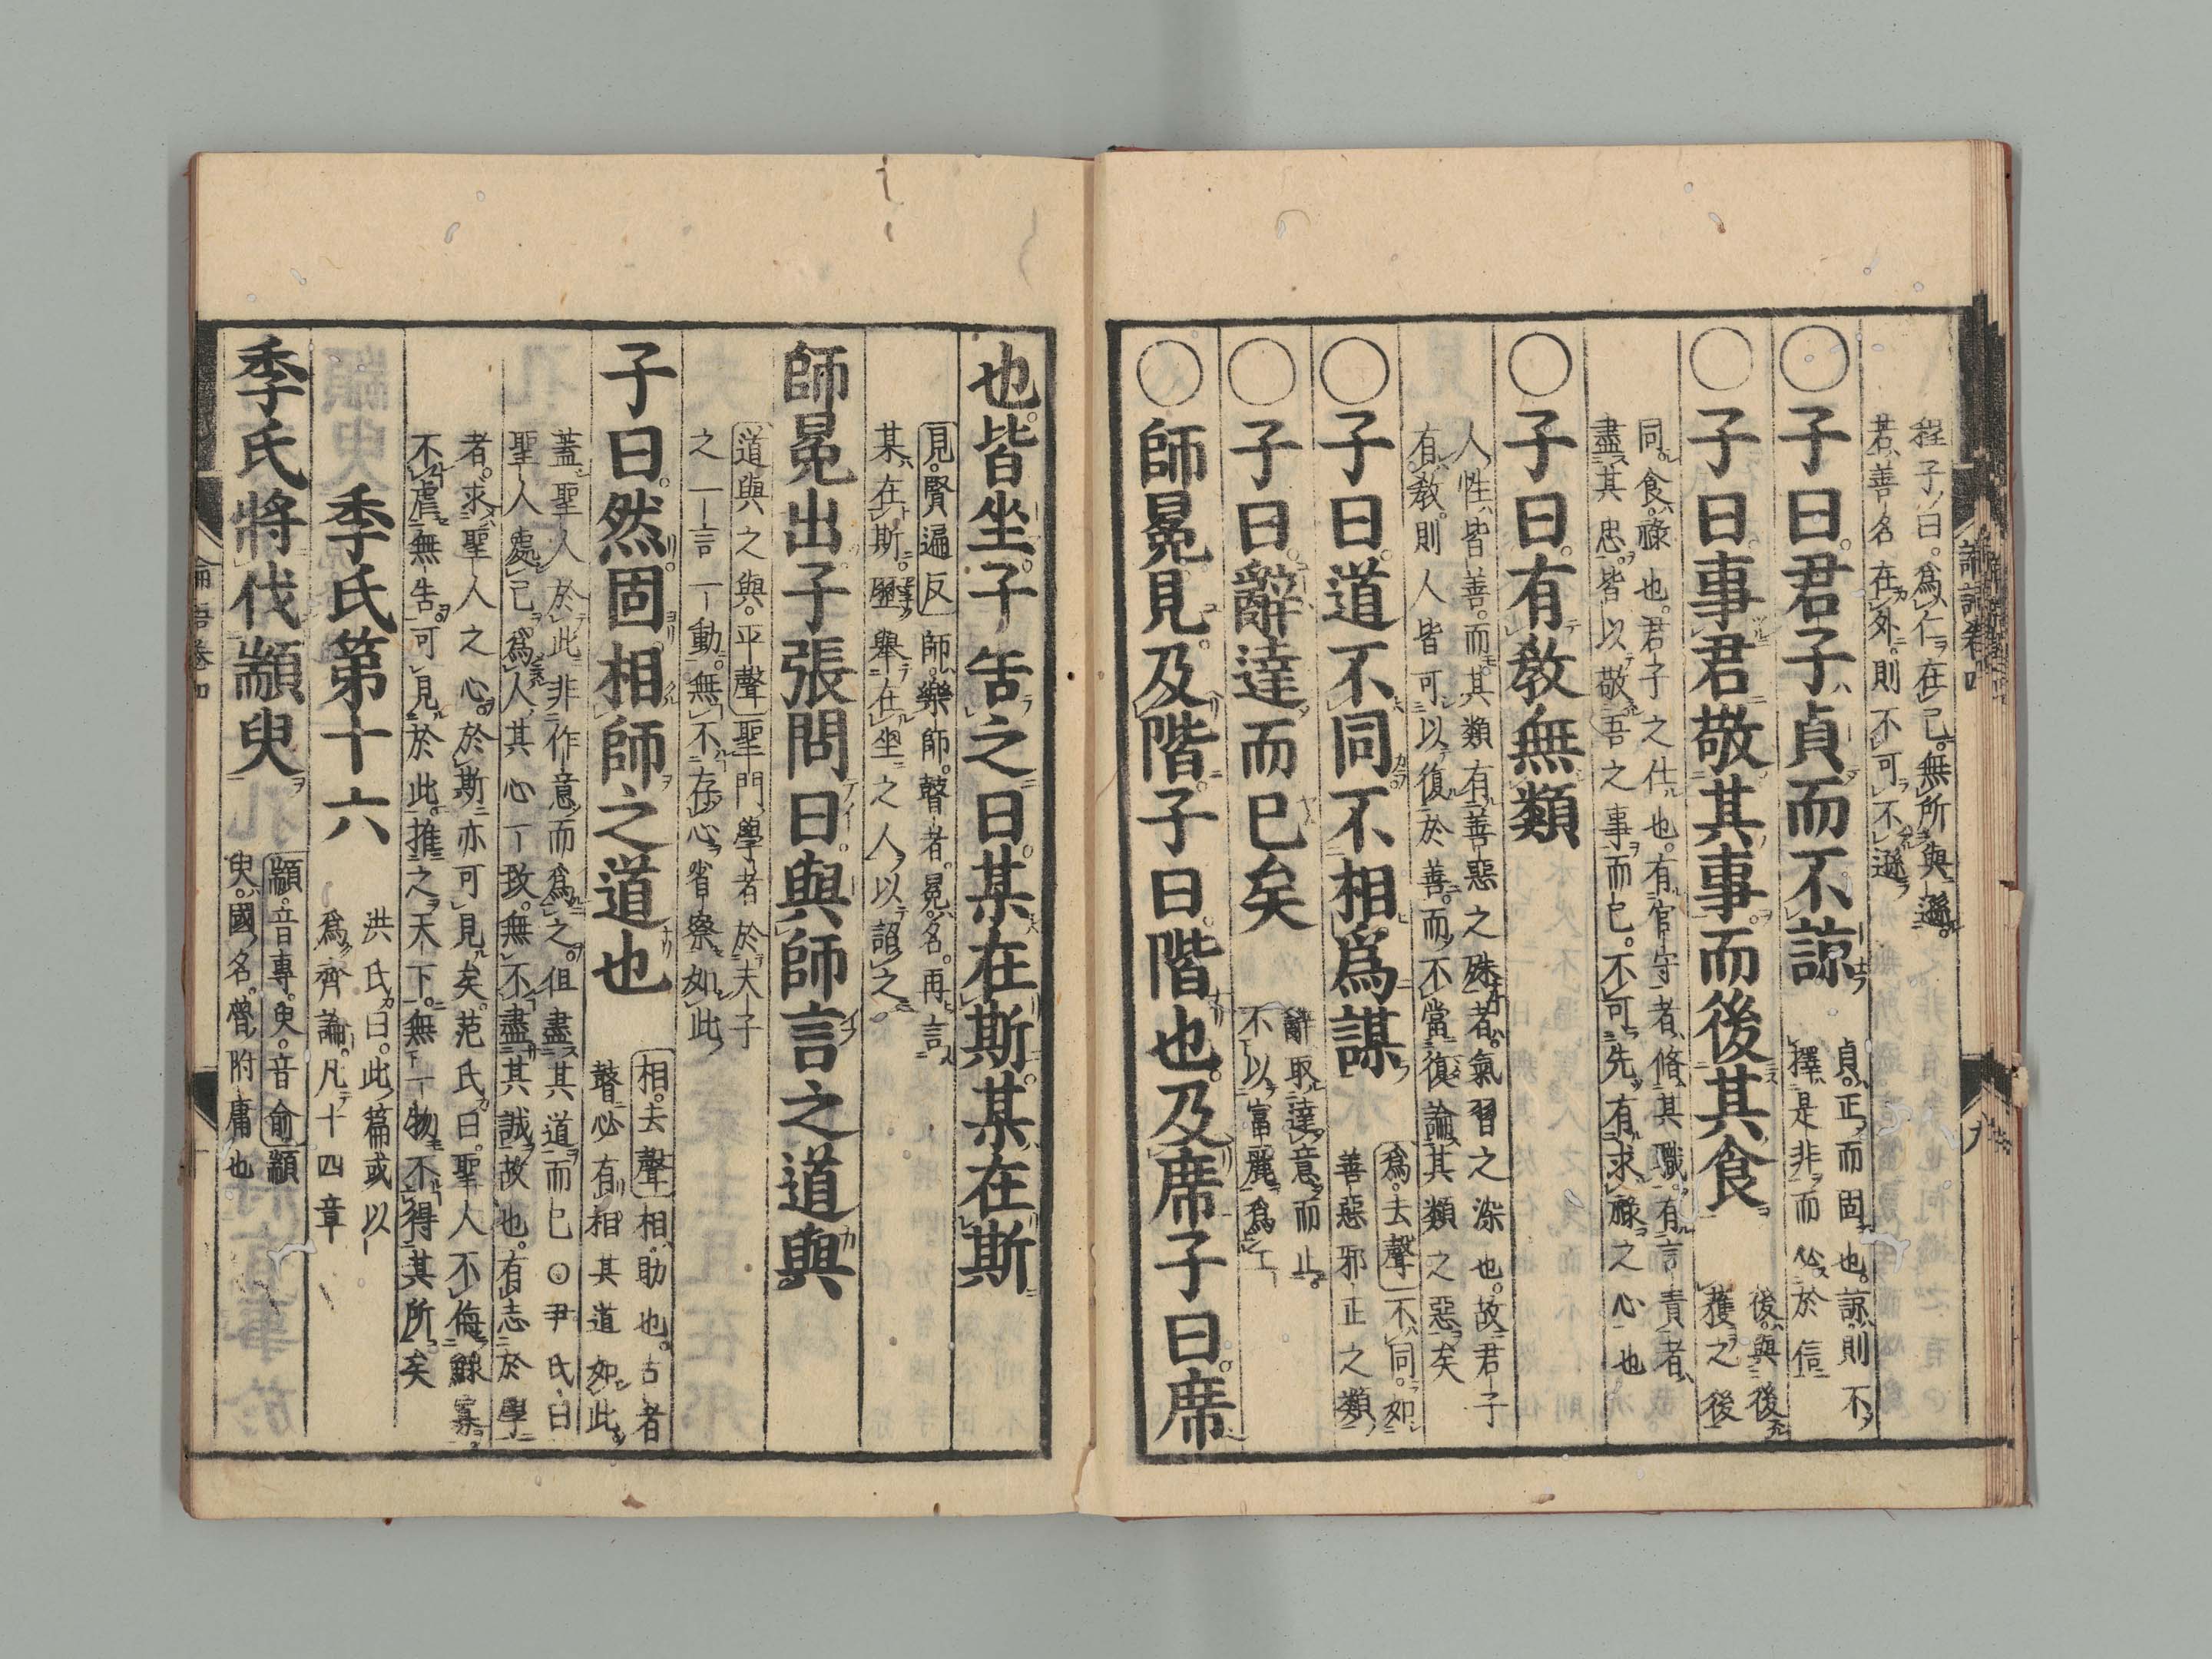 程子曰爲仁在己無所與遜
若善名在外則不可不遜
○子曰君子貞而不諒
貞正而固也諒則不
擇是非而必於信
○子曰事君敬其事而後其食
後與後
獲之後
同食祿也君子之仕也有官守者脩其職有言責者
盡其忠皆以敬吾之事而已不可先有求祿之心也
○子曰有教無類
人性皆善而其類有善惡之殊者氣習之染也故君子
有教則人皆可以復於善而不當復論其類之惡矣
○子曰道不同不相爲謀
爲去聲不同如
善惡邪正之類
○子曰辭達而已矣
辭取達意而止
不以富麗爲工
○師冕見及階子曰階也及席子曰席
也皆坐子告之曰某在斯某在斯
見賢遍反師樂師瞽者冕名再言
某在斯歷舉在坐之人以詔之
師冕出子張問曰與師言之道與
道與之與平聲聖門學者於夫子
之一言一動無不存心省察如此
子曰然固相師之道也
相去聲相助也古者
瞽必有相其道如此
蓋聖人於此非作意而爲之但盡其道而已○尹氏曰
聖人處己爲人其心一致無不盡其誠故也有志於學
者求聖人之心於斯亦可見矣范氏曰聖人不侮鰥寡
不虐無告可見於此推之天下無一物不得其所矣
季氏第十六
洪氏曰此篇或以
爲齊論凡十四章
季氏將伐顓臾
顓音專臾音俞顓
臾國名魯附庸也
論語卷四